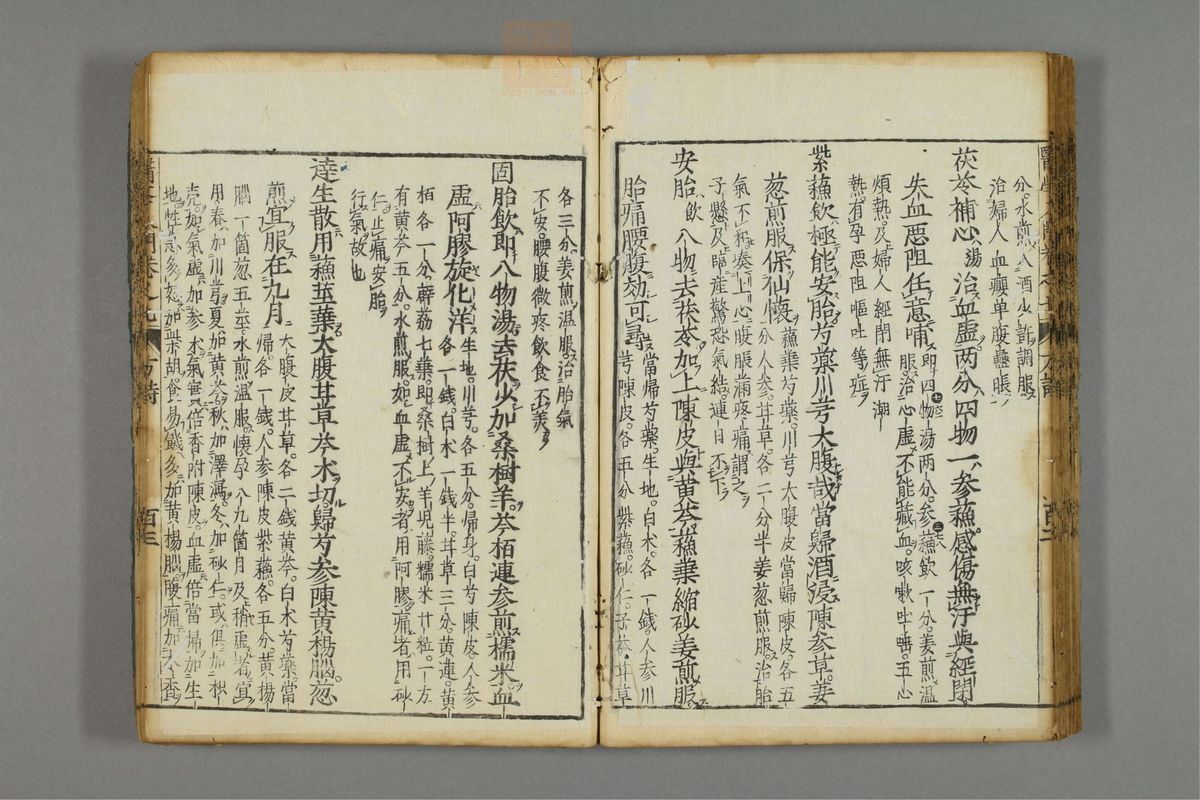 分水煎入酒少許調服
治婦人血癭單腹蠱脹
茯苓補心湯治血虛两分四物一參蘓感傷無汗與經閉
失血惡阻任意哺即四物湯两分參蘓飲一分姜煎溫
服治心虛不能藏血咳嗽吐
五心
煩熱及婦人經閉無汗潮
熱有孕惡阻嘔吐等症
紫蘓飲極能安胎芍藥川芎大腹哉當歸酒浸陳參草姜
葱煎服保仙懷蘓葉芍藥川芎大腹皮當歸陳皮各五
分人參甘草各二分半姜葱煎服治胎
氣不和湊上心腹脹滿疼痛謂之
子懸及臨產驚恐氣結連日不下
安胎飲八物去茯苓加上陳皮與黄芩蘓葉縮砂姜煎服
胎痛腰腹効可尋當歸芍藥生地白术各一錢人參川
芎陳皮各五分紫蘓砂仁子芩甘草
各三分姜煎溫服治胎氣
不安腰腹微疼飲食不美
固胎飲即八物湯去茯火加桑樹羊芩栢連參煎糯米血
虛阿膠旋化洋生地川芎各五分歸身白芍陳皮人參
各一錢白术一錢半甘草三分黄連黄
栢各一分薜荔七葉即桑樹上羊児藤糯米廿粒一方
有黄芩五分水煎服如血虛不安者用阿膠痛者用砂
仁止痛安胎
行氣故也
達生散用蘓莖葉大腹甘草芩术切歸芍參陳黄楊腦葱
煎宜服在九月大腹皮甘草各二錢黄芩白术芍藥當
歸各一錢人參陳皮紫蘓各五分黄楊
腦一箇葱五莖水煎溫服懷孕八九箇月及稍虛者宜
用春加川芎夏加黄芩秋加澤瀉冬加砂仁或俱加枳
壳如氣虛加參术氣實倍香附陳皮血虛倍當歸加生
地性急多怒加柴胡食易饑多加黄楊腦腹痛加木香